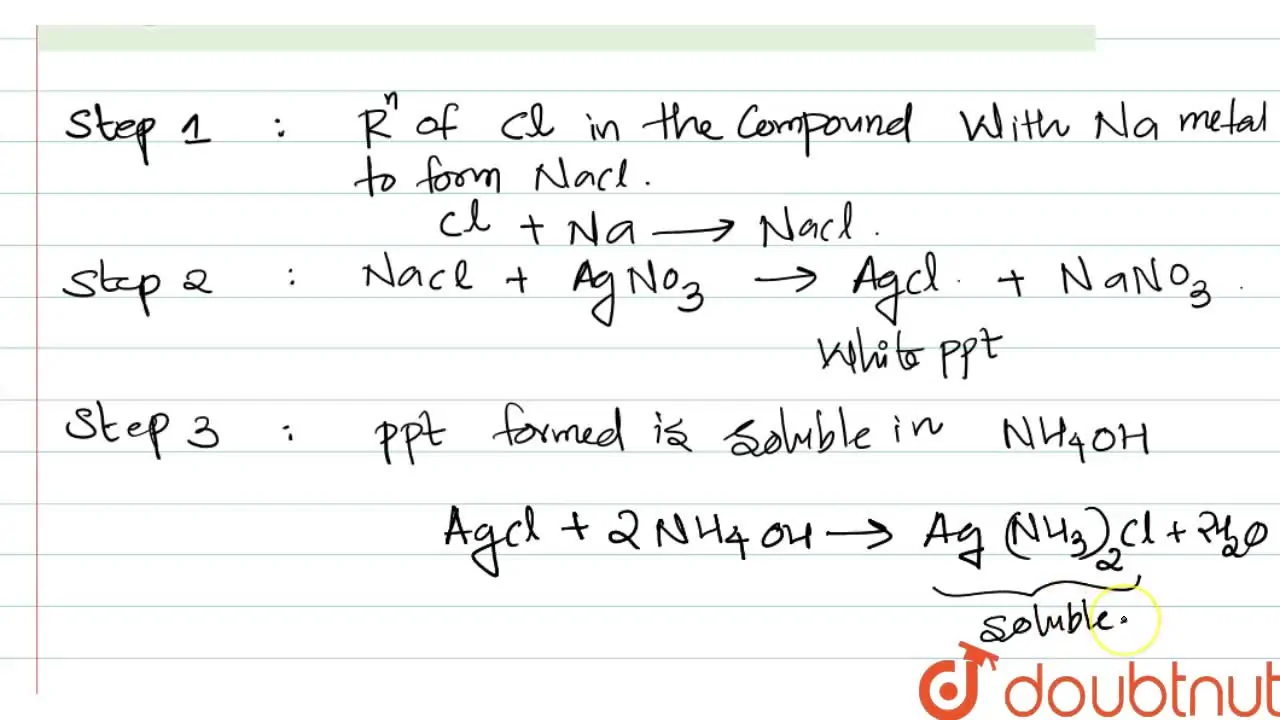 Step 1 : Rⁿ of Cl in the Compound With Na metal
to form Nacl.
Cl + Na → Nacl.
Step 2 : Nacl + AgNO₃ → Agcl. + NaNO₃.
White ppt
Step 3 : ppt formed is soluble in NH₄OH
Agcl + 2NH₄OH → Ag(NH₃)₂Cl + 2H₂O
soluble.
doubtnut